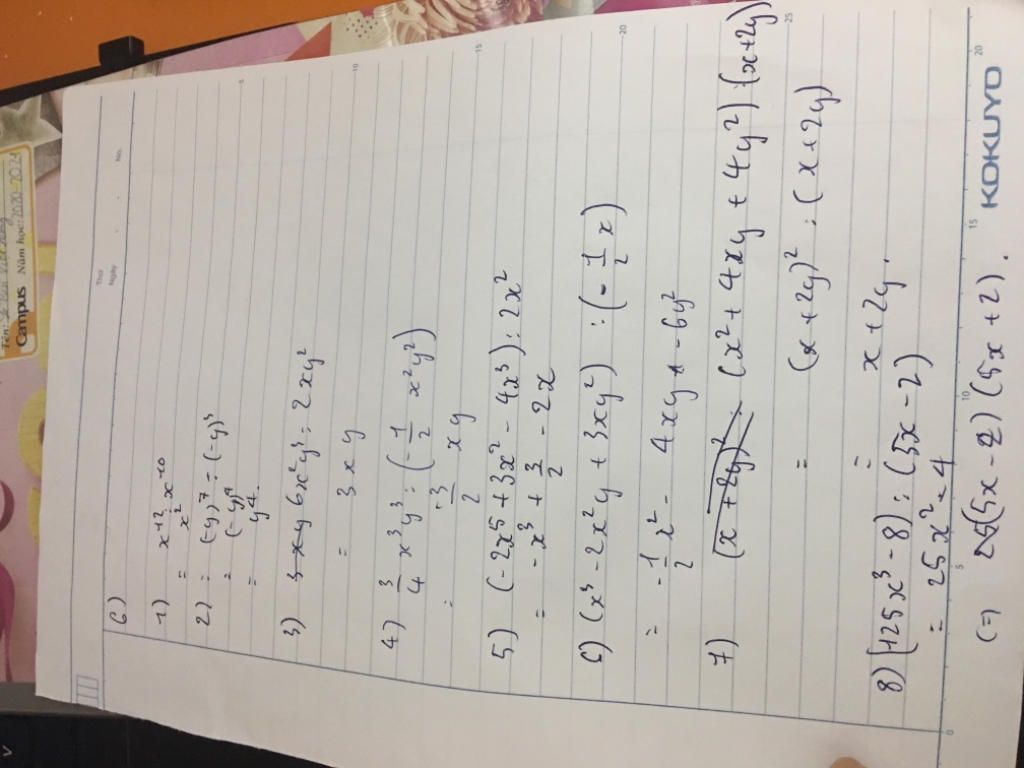 Campus Năm học: 2020-2021
Thứ
Ngày
No.
6)
1) x⁺¹² x⁻¹⁰
= x²
2) : (-y)⁷ : (-y)³
= (-y)⁴
= y⁴.
3) 3xy 6x²y³ : 2xy²
= 3xy
4) 3/4 x³y³ : (-1/2 x²y²)
= -3/2 xy
5) (-2x⁵ + 3x² - 4x³) : 2x²
= -x³ + 3/2 - 2x
6) (x³ - 2x²y + 3xy²) : (-1/2 x)
= -1/2 x² - 4xy + -6y²
7) (x + 2y)² : (x² + 4xy + 4y²) : (x+2y)
= (x + 2y)² : (x + 2y)
= x + 2y.
8) (125x³ - 8) : (5x - 2)
= 25x² + 4
(=) (5x - 2) (5x + 2).
5
10
15
20
25
5
10
15
20
KOKUYO